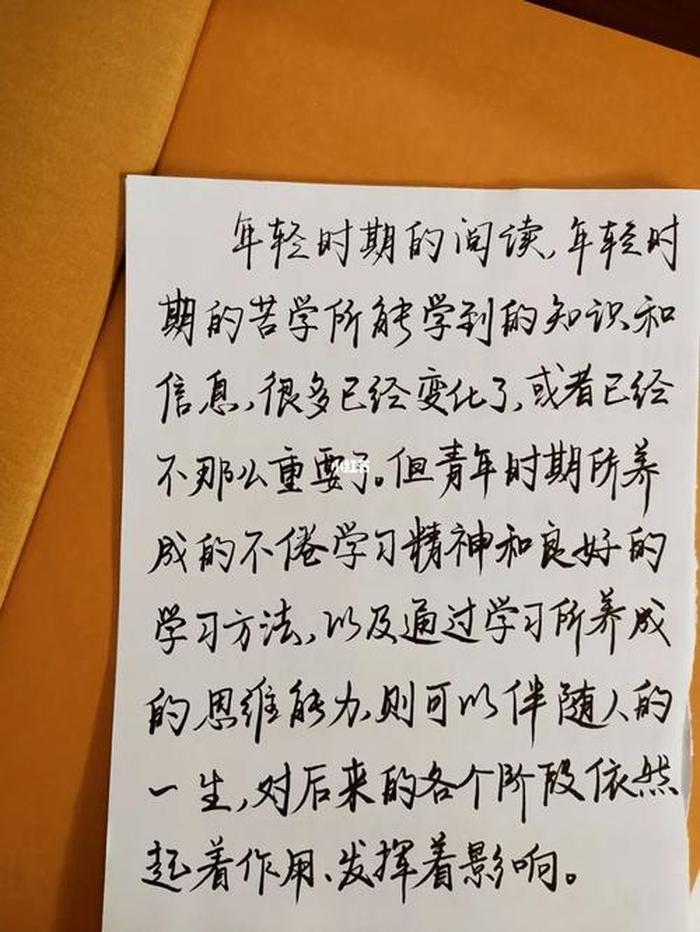 年轻时期的阅读,年轻时
期的苦学所能学到的知识和
信息,很多已经变化了,或者已经
不那么重要了。但青年时期所养
成的不倦学习精神和良好的
学习方法,以及通过学习所养成
的思维能力,则可以伴随人的
一生,对后来的各个阶段依然
起着作用、发挥着影响。
小红书